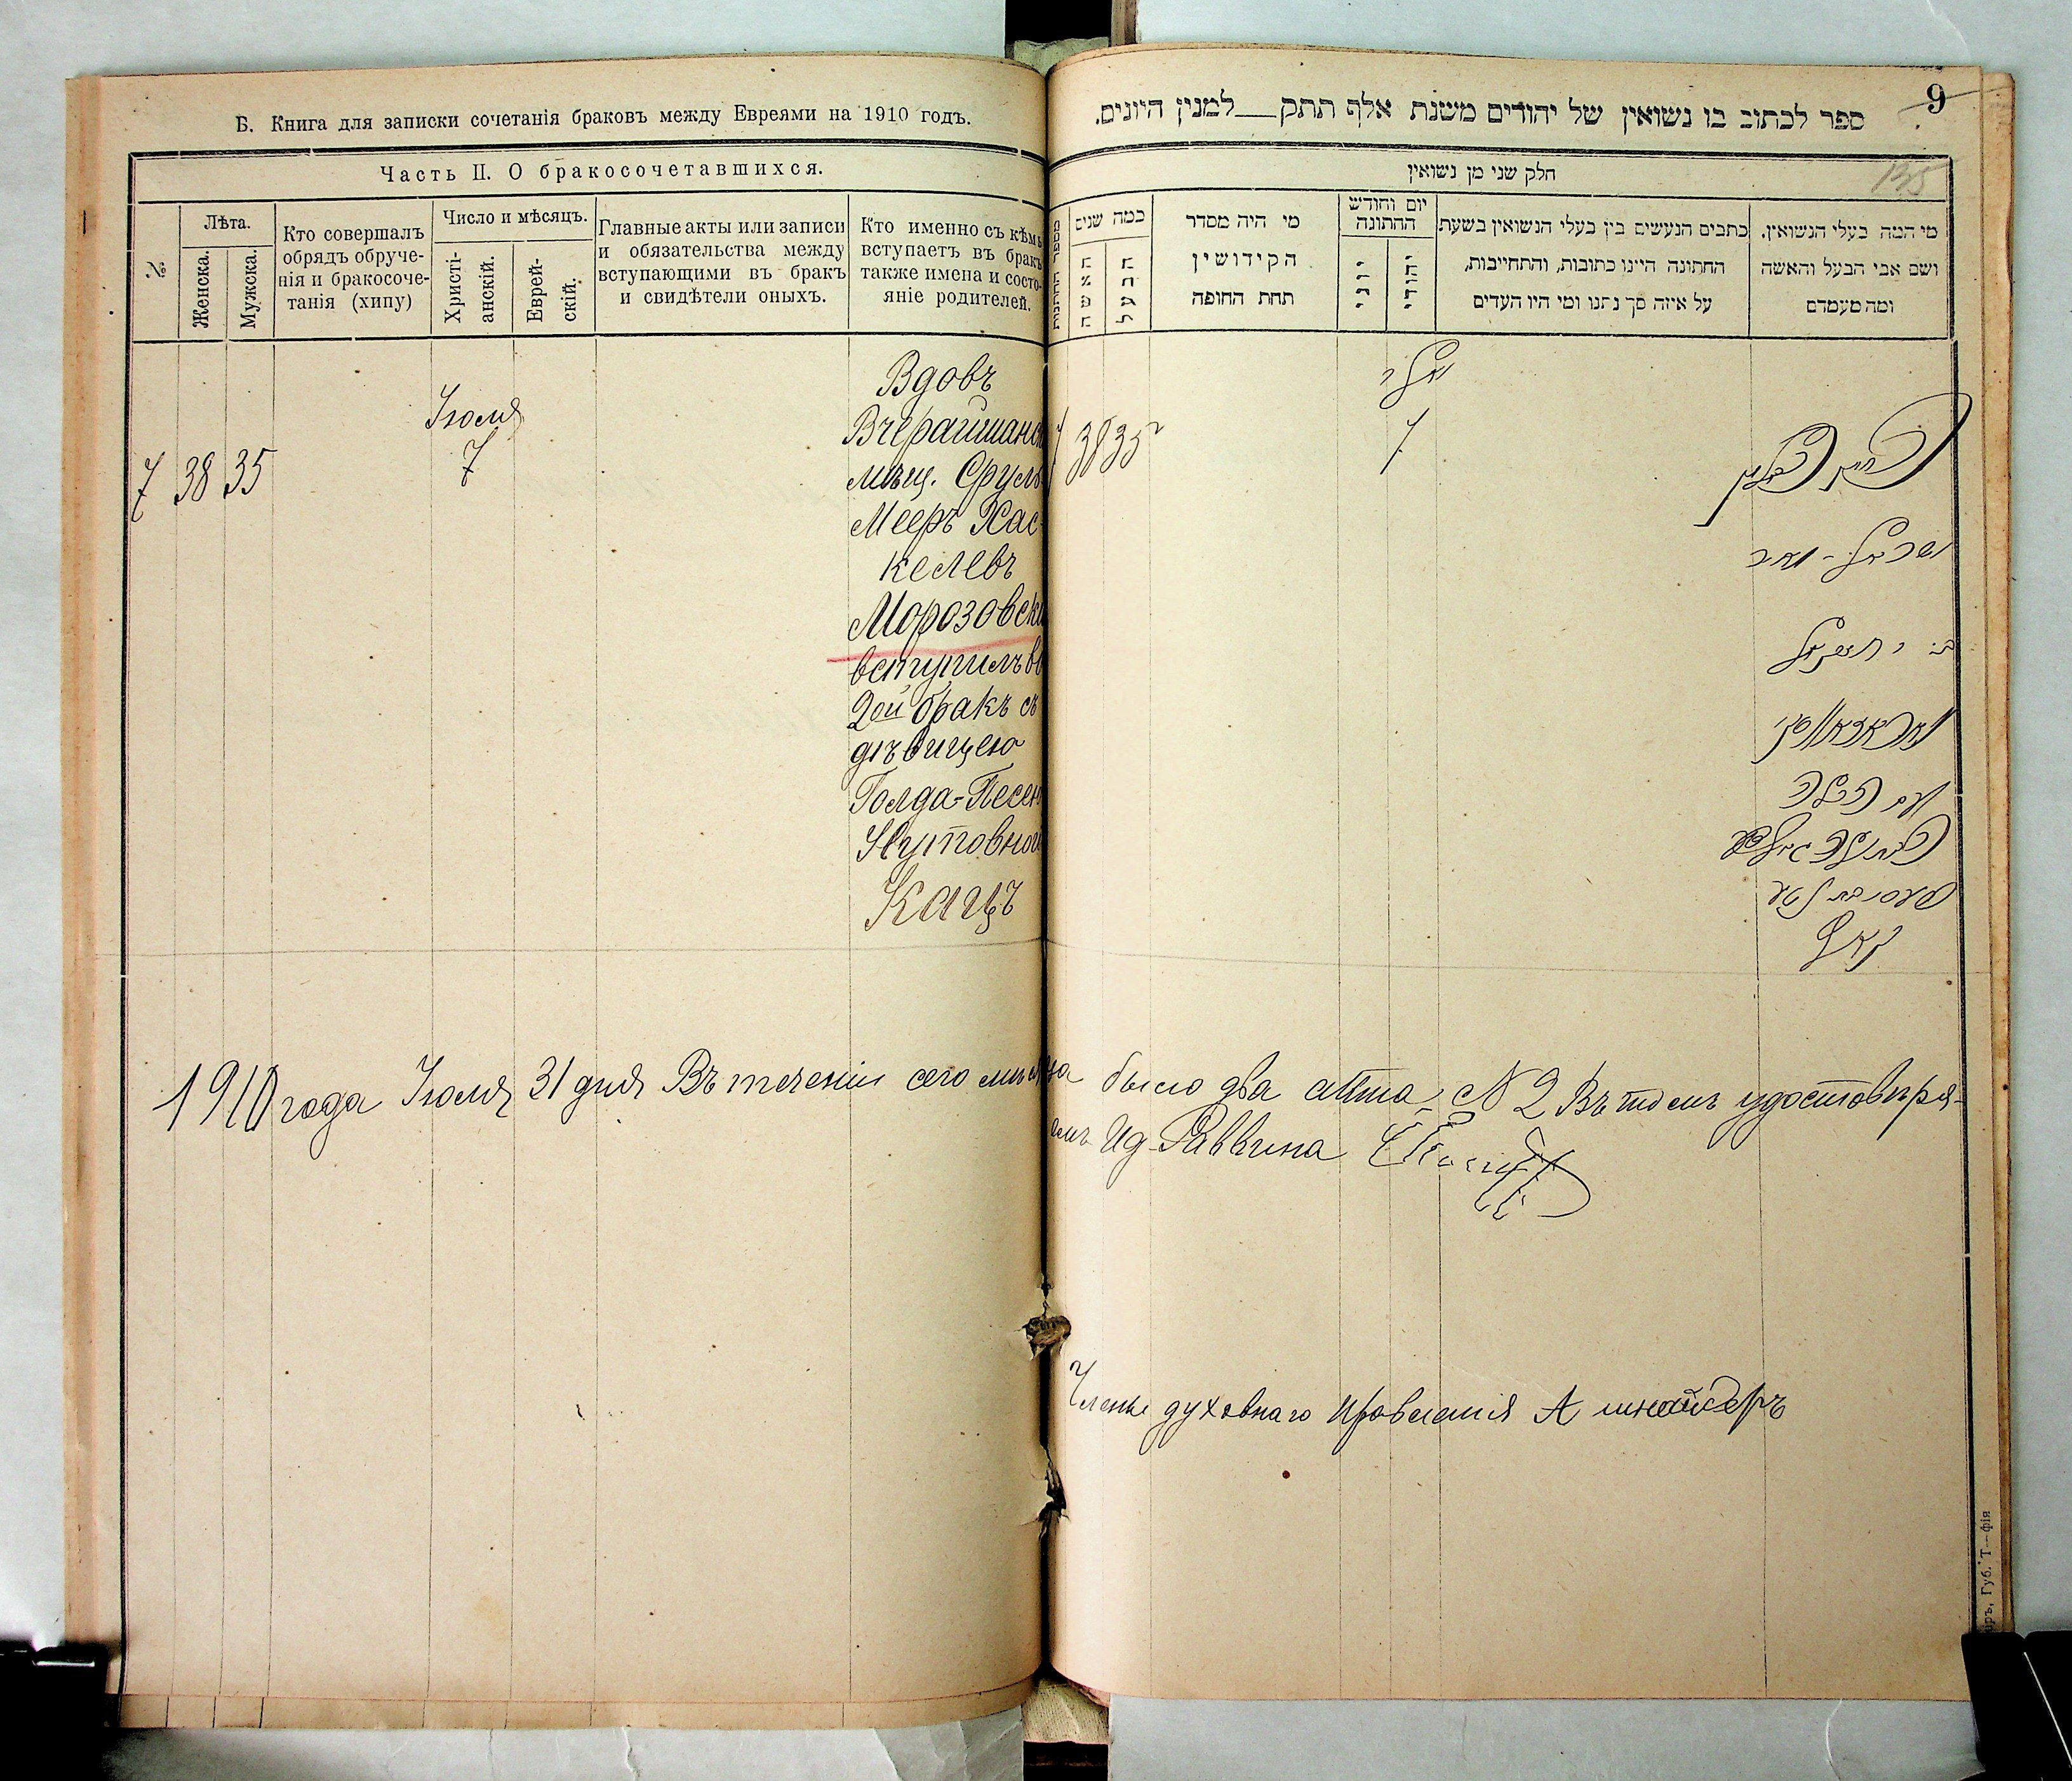 Б. Книга для записки сочетанія браковъ между Евреями на 1910 годъ.
Часть II. О бракосочетавшихся.
№
Лѣта.
Женска.
Мужска.
Кто совершалъ
обрядъ обруче-
нія и бракосоче-
танія (хипу)
Число и мѣсяцъ.
Христі-
анскій.
Еврей-
скій.
Главные акты или записи
и обязательства между
вступающими въ бракъ
и свидѣтели оныхъ.
Кто именно съ кѣмъ
вступаетъ въ бракъ
также имена и состо-
яніе родителей.
7 38 35
Іюля
7
Вдовъ
Вчерайшанск
мѣщ. Сруль
Мееръ Хас-
келевъ
Морозовски
вступилъ во
2ой бракъ съ
дѣвицею
Голда-Песен
Нутовной
Кацъ
9
135
ספר לכתוב בו נשואין של יהודים משנת אלף תתק __ למנין היונים.
חלק שני מן נשואין
מספר החתונות
כמה שנים
האשה
הבעל
מי היה מסדר
הקידושין
תחת החופה
יום וחודש
החתונה
יוני
יהודי
כתבים הנעשים בין בעלי הנשואין בשעת
החתונה היינו כתובות, והתחייבות,
על איזה סך נתנו ומי היו העדים
מי המה בעלי הנשואין,
ושם אבי הבעל והאשה
ומה מעמדם
7 38 35
7
ישראל - מאיר
ב׳ ר׳ יחזקאל
מאראזאווסקי
1910 года Іюля 31 дня Въ теченіи сего мѣсяца было два акта № 2 Въ томъ удостовѣря-
емъ Ид. Раввина
Члены духовнаго Правленія А
Губ. Т—фія